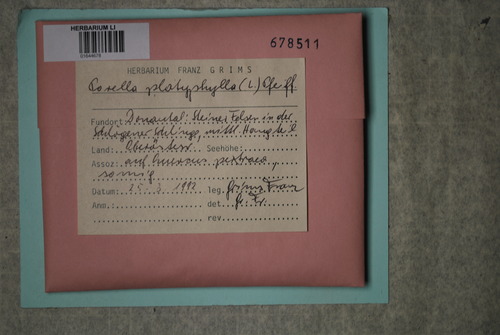 HERBARIUM LI
678511
HERBARIUM FRANZ GRIMS
Porella platyphylla (L.) Pfeiff.
Fundort: Donautal: kleiner Felsen in der
Schlögener Schlinge, mittl. Hangteil
Land: Oberösterr. Seehöhe:
Assoz: auf
sonnig
Datum: 25. 3. 1992 leg. Grims Franz
Anm.: det. Gr. Fr.
rev.